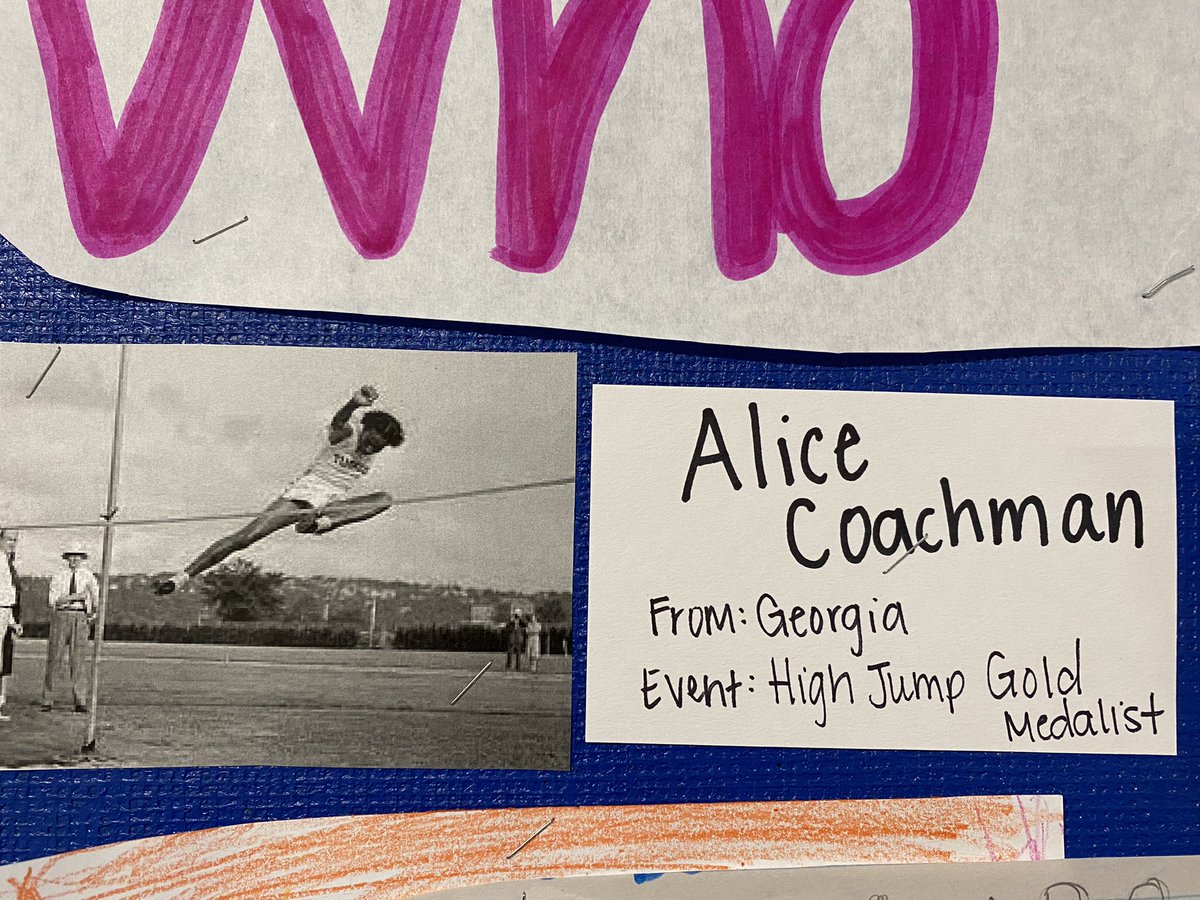 Who
Alice
Coachman
From: Georgia
Event: High Jump Gold
Medalist